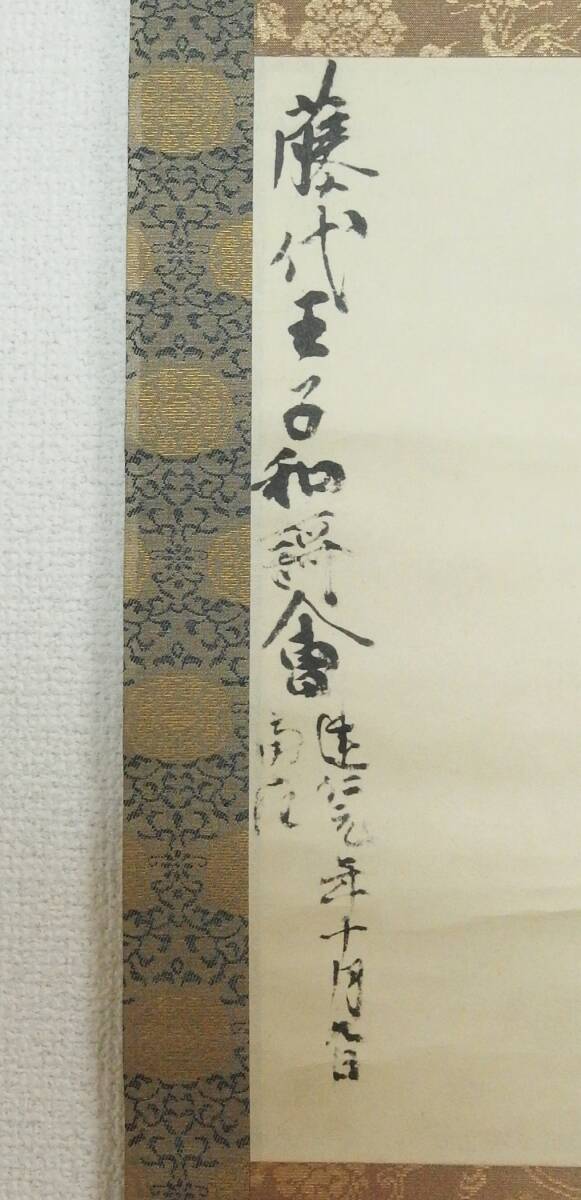 藤代王子和歌會
建仁元年十月九日
當座